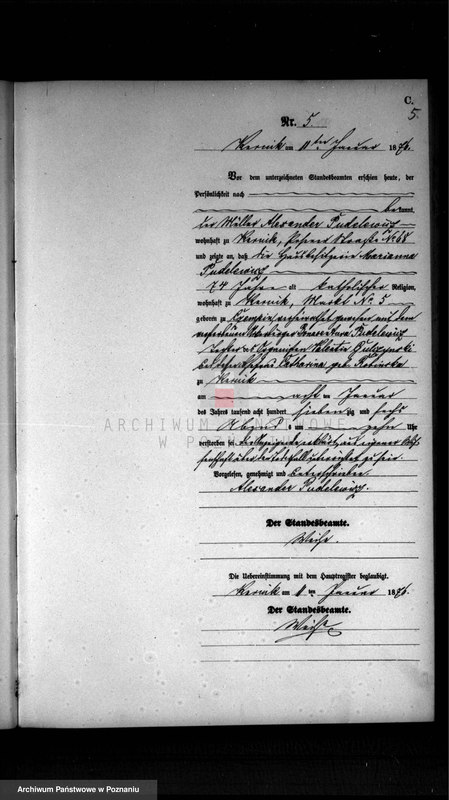 C.
5.
Nr. 5
Kurnik am 11 ten Januar 1876.
Vor dem unterzeichneten Standesbeamten erschien heute, der
Persönlichkeit nach
bekannt
der Müller Alexander Pudelewicz
wohnhaft zu Kurnik, Posener Straße No 68
und zeigte an, daß die Hausbesitzerin Marianna
Pudelewicz
74 Jahre alt katholischer Religion,
wohnhaft zu Kurnik, Markt No 5
geboren zu verheirathet gewesen mit dem
verstorbenen Pudelewicz
Tochter des Organisten Valentin
Catharina geb.
zu Kurnik
am acht ten Januar
des Jahres tausend acht hundert sieben zig und sechs
Abends um zehn Uhr
verstorben sei.
Vorgelesen, genehmigt und unterschrieben
Alexander Pudelewicz.
Der Standesbeamte.
Die Uebereinstimmung mit dem Hauptregister beglaubigt.
Kurnik am 11 ten Januar 1876.
Der Standesbeamte.
ARCHIWUM PAŃSTWOWE
W POZNANIU
Archiwum Państwowe w Poznaniu